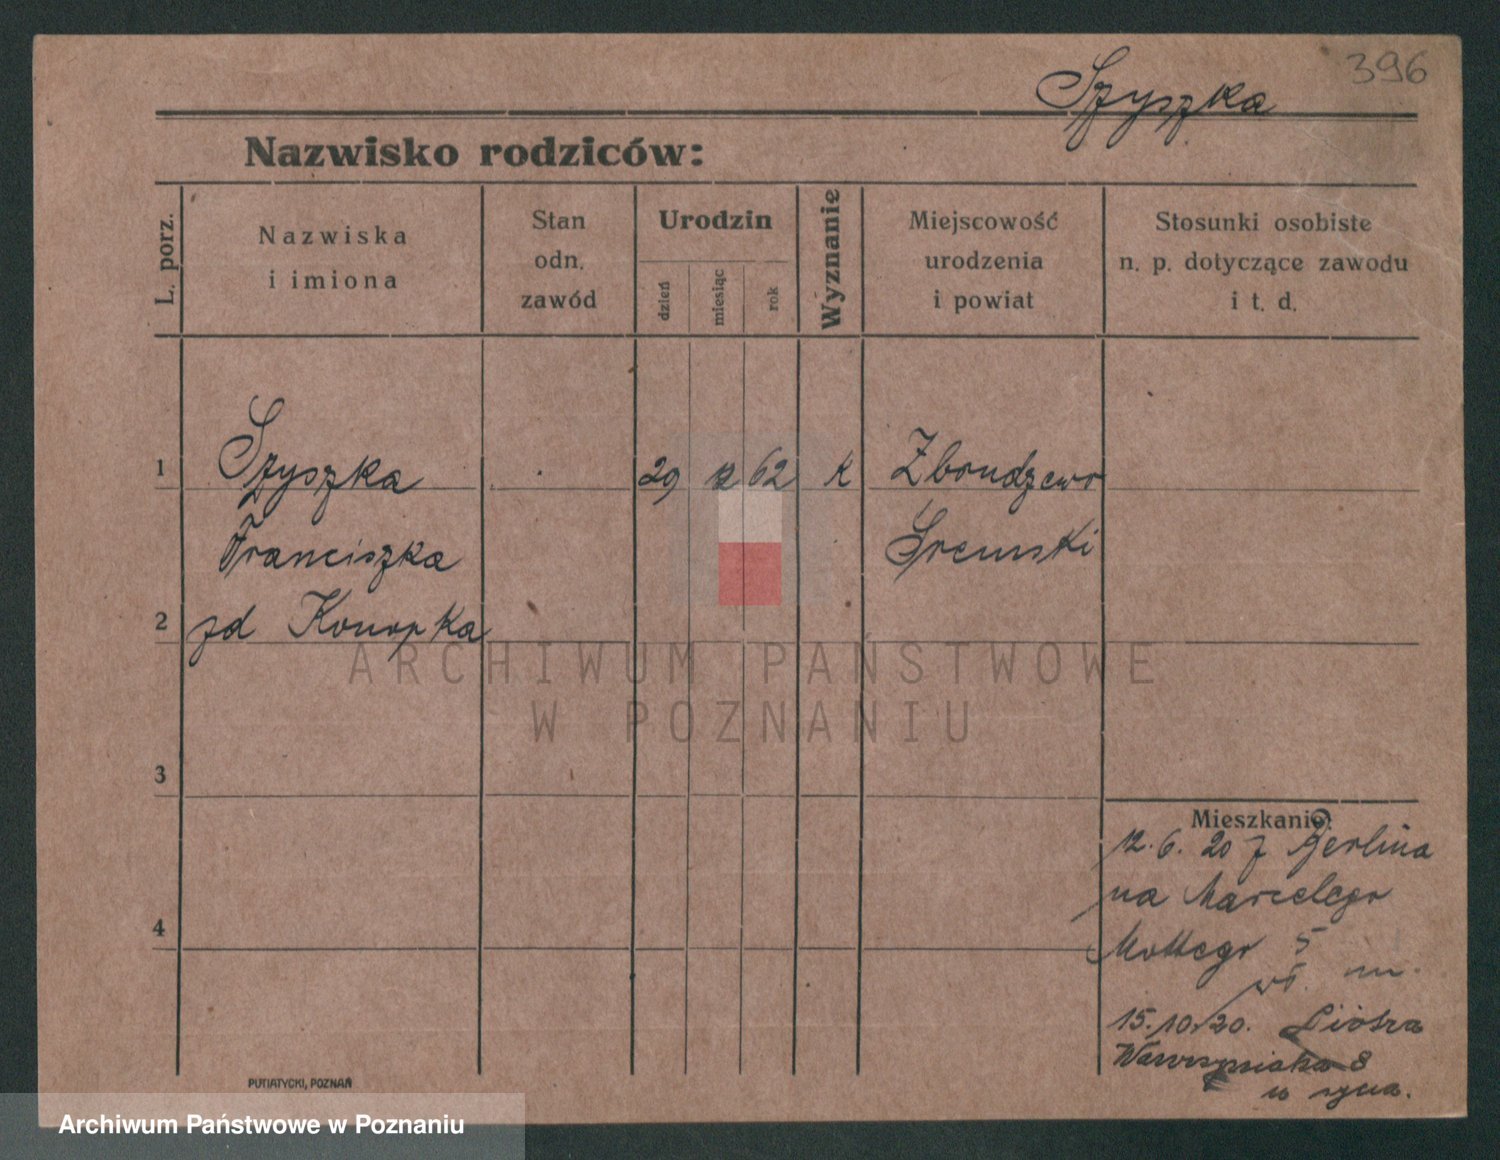 396
Szyszka
Nazwisko rodziców:
L. porz.
Nazwiska
i imiona
Stan
odn.
zawód
Urodzin
dzień
miesiąc
rok
Wyznanie
Miejscowość
urodzenia
i powiat
Stosunki osobiste
n. p. dotyczące zawodu
i t. d.
1 Szyszka 29 12 62 k Zbrudzewo
Franciszka Śremski
2 zd Konopka
ARCHIWUM PAŃSTWOWE
W POZNANIU
3
4
Mieszkanie:
12.6.20 z Berlina
na Marcelego
Mottego 5
15.10.20. Piotra
Wawrzyniaka 8
u syna.
PUTIATYCKI, POZNAŃ
Archiwum Państwowe w Poznaniu